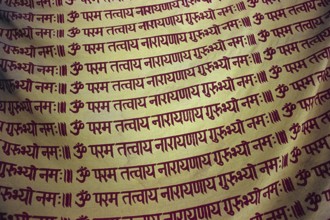 गुरुभ्यो नमः॥ ॐ परम तत्वाय नारायणाय
गुरुभ्यो नमः॥ ॐ परम तत्वाय नारायणाय गुरुभ्यो नमः॥
गुरुभ्यो नमः॥ ॐ परम तत्वाय नारायणाय गुरुभ्यो नमः॥ ॐ
गुरुभ्यो नमः॥ ॐ परम तत्वाय नारायणाय गुरुभ्यो नमः॥ ॐ
गुरुभ्यो नमः॥ ॐ परम तत्वाय नारायणाय गुरुभ्यो नमः॥ ॐ
गुरुभ्यो नमः॥ ॐ परम तत्वाय नारायणाय गुरुभ्यो नमः॥ ॐ
गुरुभ्यो नमः॥ ॐ परम तत्वाय नारायणाय गुरुभ्यो नमः॥ ॐ
गुरुभ्यो नमः॥ ॐ परम तत्वाय नारायणाय गुरुभ्यो नमः॥ ॐ
गुरुभ्यो नमः॥ ॐ परम तत्वाय नारायणाय गुरुभ्यो नमः॥ ॐ
नमः॥ ॐ परम तत्वाय नारायणाय गुरुभ्यो नमः॥